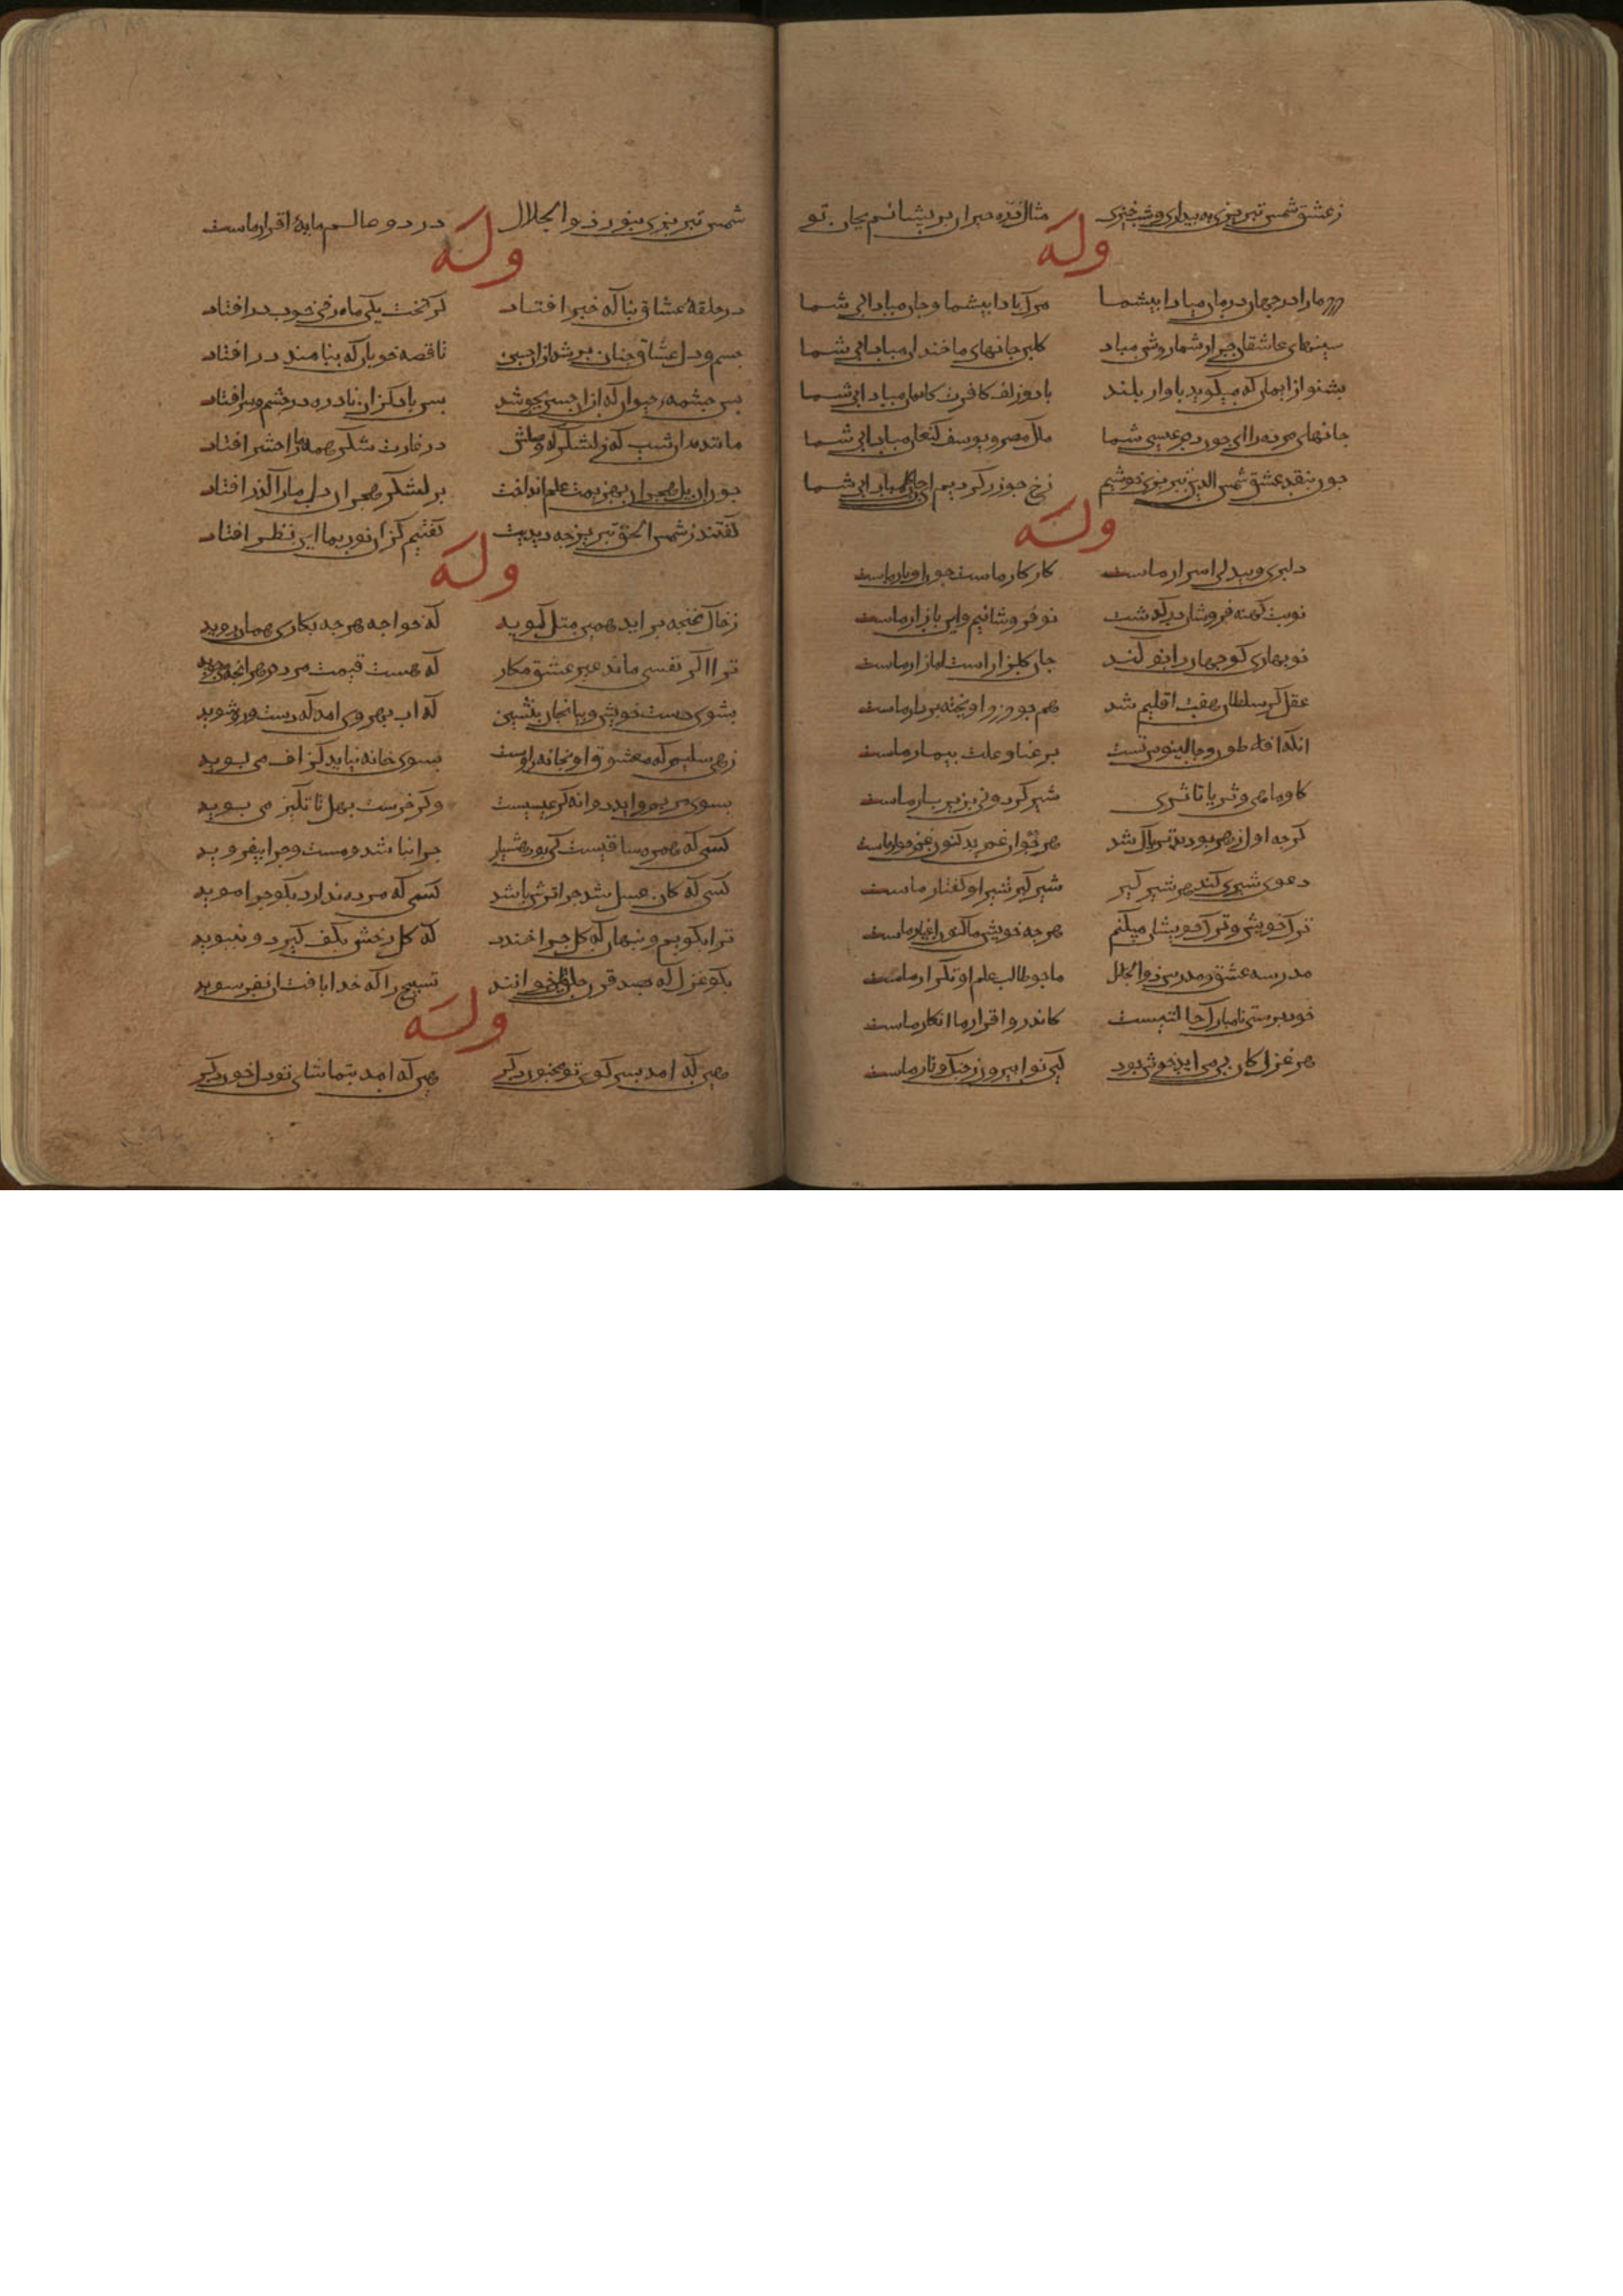 زعشق شمس تبریزی به بیداری و شبخیزی مثال ذره حیران پریشانم بجان تو
وله
درد ما را در جهان درمان مبادا بیشما مرک بادا بیشما و جان مبادا بی شما
سینهای عاشقان جز از شما روشن مباد کلبن جانهای ما خندان مبادا بی شما
بشنو از ایمان که میکوید باواز بلند با دو زلف کافرت کایمان مبادا بی شما
جانهای مرده را ای چون دم عیسی شما ملک مصر و یوسف کنعان مبادا بی شما
چون بنقد عشق شمس الدین تبریزی خوشیم رخ چو زر کردیم مبادا بی شما
وله
دلبری و بیدلی اسرار ماست کار کار ماست چون او یار ماست
نوبت کهنه فروشان درکذشت نو فروشانیم و این بازار ماست
نوبهاری کو جهان را نو کند جان کلزار است اما زار ماست
عقل اکر سلطان هفت اقلیم شد هم جو دزد اویخته بر دار ماست
انکه افلاطون و جالینوس تست پر عنا و علت بیمار ماست
کاو و ماهی و ثریا تا ثری شیر کردونی بزیر بار ماست
کرجه اول زهر بود تریاک شد هرج آن غم بد کنون غمخوار ماست
دعوی شیری کند هر شیر کیر شیر کیر شیر او کفتار ماست
ترک خویش و ترک خویشان میکنم هرجه خویش ما کنون اغیار ماست
مدرسه عشق و مدرس ذوالجلال ما جو طالب علم او تکرار ماست
خود پرستی نامبارک حالتیست کاندرو اقرار ما انکار ماست
هر غزل کان بی من اید خوش بود کین نوا بیرون ز جنک و تار ماست
شمس تبریزی بنور ذوالجلال در دو عالم مایهٔ اقرار ماست
وله
در حلقهٔ عشاق بناکه خبر افتاد کز بخت یکی ماه رخی خوب درافتاد
جسم و دل عشاق جنان پر شد از حسن تا قصه خوبان که بنامند در افتاد
بس جشمه حیوان که از ان حسن بجوشد بس باد کزان نادره در جشم و سر افتاد
مانند ان شب که ز لشکرکه وصلش در غارت شکر همه را حشر افتاد
جون از بل هجران بهزیمت علم انداخت بر لشکر هجران دل مارا کذر افتاد
کفتند ز شمس الحق تبریز جه دیدیت کفتیم کزان نور بما این نظر افتاد
وله
ز خاک غنجه بر اید همین مثل کوید که خواجه هرجه بکاری همان روید
ترا اکر نفسی ماند غیر عشق مکار که هست قیمت مردم هر انجه می جوید
بشوی دست ز خویش و بیا بخوان بنشین که اب بهر وی امد که دست و رو شوید
زهی سلیم که معشوق او بخانه اوست بسوی خانه نیاید کزاف می بوید
بسوی مریم واید دوانه کر عیسیست وکر خرست بهل تا تکیز می بوید
کسی که همره ساقیست کی بود هشیار جرا نباشد و مست و جرا نیفزوید
کسی که کان عسل شد جرا ترش باشد کسی که مرده ندارد بکو جرا موید
ترا بکویم و بنهان که کل جرا خندد که کل رخش بکف کیرد و نبوید
بکو غزل که بصد قرن خلق خوانند نسیج را که خدا بافت ان نفرسوید
وله
هر که امد بسر کوی تو مخنور دکر هر که امد بتماشای تو دل خور دکر